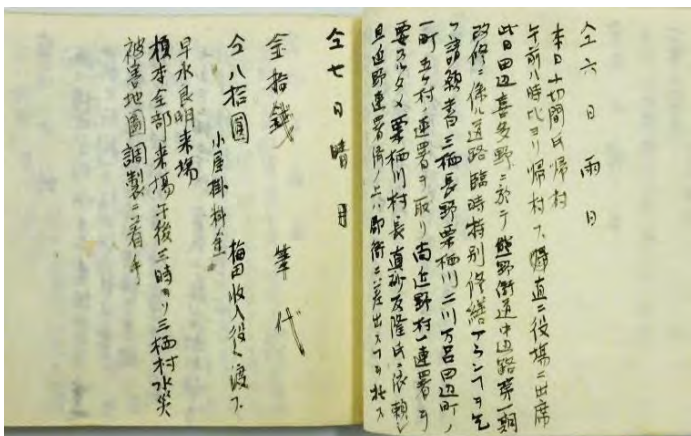 仝六日雨日
本日小切間氏帰村
午前八時比ヨリ帰村ス帰直ニ役場ニ出席
此日田辺喜多野ニ於テ熊野街道中辺路第一期
改修ニ係ル道路臨時特別修繕アランコトヲ乞
フ請願書三栖長野栗栖川二川万呂田辺町ノ
一町五ケ村連署ヲ取リ尚近野村ノ連署ヲ
要スルタメ栗栖川村長真砂友隆氏ニ依頼シ
且近野連署済ノ上ハ郡衙ニ差出スコトヲ托ス
仝七日晴月
金拾銭 筆代
仝八拾圓 梅田収入役ヘ渡ス
小屋掛料金
早水良明来場
榎本全部来場午後三時ヨリ三栖村水災
被害地圖調製ニ着手